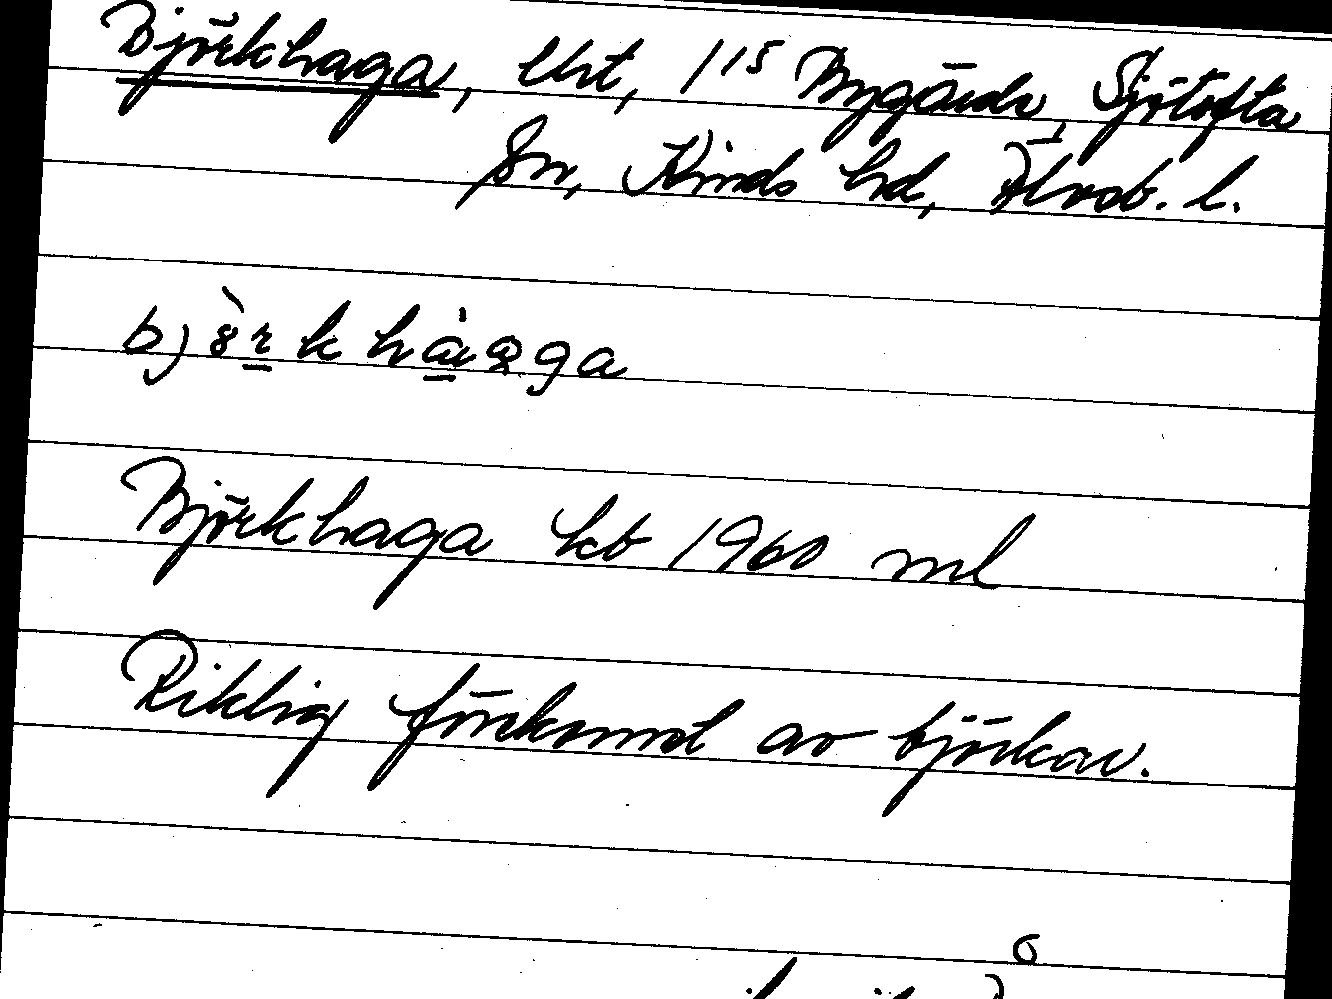 Björkhaga, lht, 1¹⁵ Bygärde, Sjötofta
sn, Kinds hd, Älvsb. l.
Björkhaga kb 1960 ml
Riklig förekomst av björkar.